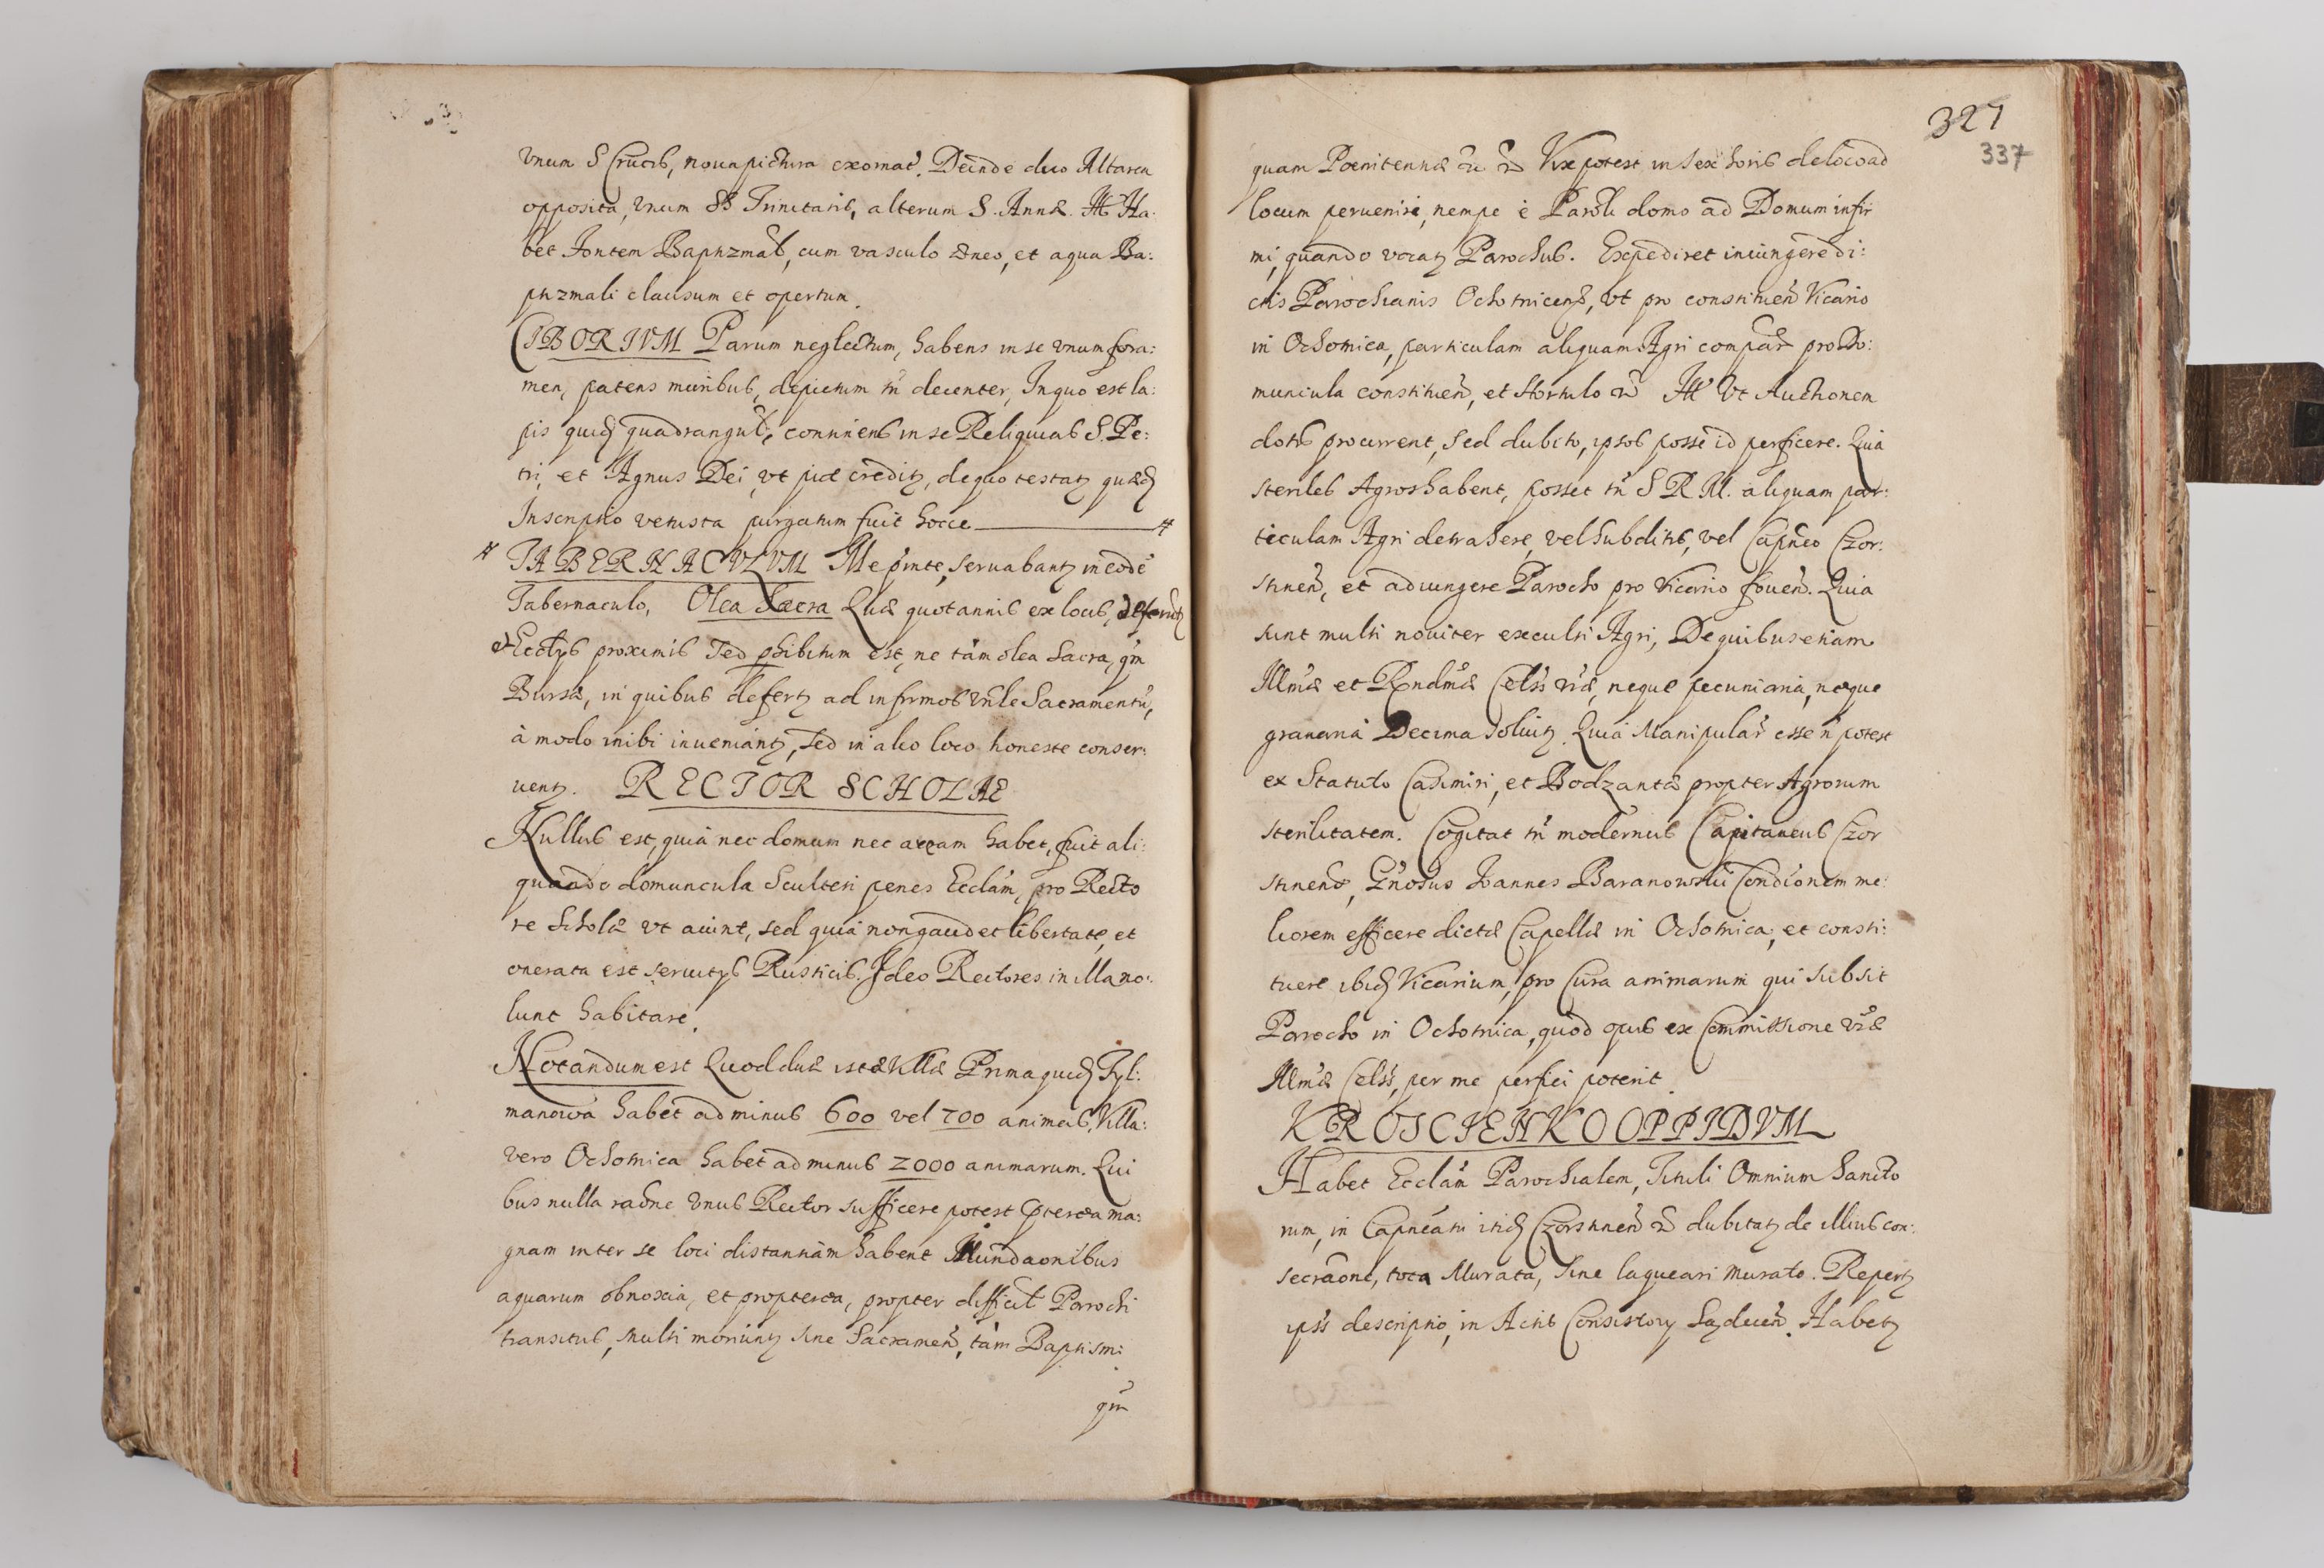 Vnum S Crucis, noua pictura exornat̃. Deinde duo Altaria
opposita, vnum SS Trinitatis, alterum S. Annæ. Itt Ha:
bet Fontem Baptizmat̃, cum vasculo æneo, et aqua Ba:
ptizmali clausum et opertum.
CIBORIVM Parum neglectum, habens in se vnum fora:
men, patens muribus, depictum tñ decenter, In quo est la:
pis quid quadrangul̃, continens in se Reliquias S. Pe:
tri, et Agnus Dei, vt piæ creditꝫ, de quo testatꝫ quæd
Inscriptio vetusta purgatum fuit hocce #
# TABERNACVLVM Me p̃nte, seruabantꝫ in eodẽ
Tabernaculo, Olea Sacra Quæ quotannis ex locis, deferutꝫ
Ecclÿs proximis Sed ꝓhibitum est, ne tàm olea Sacra, q̃m
Bursa, in quibus defertꝫ ad infirmos vñle Sacramentũ,
à modo inibi inueniantꝫ, sed in alio loco honeste conser:
uentꝫ. RECTOR SCHOLAE
Nullus est, quià nec domum nec aream habet, fuit ali:
quando domuncula Sculteti penes Ecclãm, pro Recto
re Scholæ vt aiunt, sed quià non gaudet libertate, et
onerata est seruitÿs Rusticis. Ideo Rectores in illa no:
lunt habitare.
Notandum est Quod duæ istæ Villæ Prima quid Tyl:
manowa habet ad minus 600 vel 700 animas, Villa:
vero Ochotnica habet ad minus 2000 animarum. Qui
bus nulla raõne vnus Rector sufficere potest Pterea ma:
gnam inter se loci distantiàm habent Inundaonibus
aquarum obnoxia, et propterea, propter difficil̃ Parochi
transitus, multi moriuntꝫ sine Sacrameñ, tàm Baptismi
q̃m
327
337
quam Pœnitentiæ Vix potest in sex horis de loco ad
locum perueniri, nempe è Paroħ domo ad Domum infir
mi, quando vocatꝫ Parochus. Expediret iniungere di:
ctis Parochianis Ochotnicenꝭ, vt pro constitueñ Vicario
in Ochotnica, particulam aliquam Agri compar̃ pro Do:
muncula constitueñ, et Hortulo Itt Vt Auctionem
dotis procurrent, sed dubito, ipsos posse id perficere. Quia
steriles Agros habent, posset tñ S R M. aliquam par:
ticulam Agri detrahere, vel subditis, vel Capñeo Czor:
stineñ, et adiungere Parocho pro Vicario foueñ. Quia
sunt multi nouiter exculti Agri, De quibus etiam
Illmæ et Rndmæ Celss̃ vr̃æ, neque pecuniaria, neque
granaria Decima soluitꝫ Quià Manipular̃ esse ñ potest
ex Statuto Casimiri, et Bodzantæ propter Agrorum
sterilitatem. Cogitat tñ modernus Capitaneus Czor
stinenꝭ, Gñosus Ioannes Baranowski Condiõnem me:
liorem efficere dictæ Capellæ in Ochotnica, et consti:
tuere ibid Vicarium, pro Cura animarum qui subsit
Parocho in Ochotnica, quod opus ex Commissione vr̃æ
Illmæ Celss̃, per me perfici poterit
KROSCIENKO OPPIDVM
Habet Ecclãm Parochialem, Tituli Omnium Sancto
rum, in Capneatu itid Czorstineñ dubitatꝫ de illius con:
secrãone, tota Murata, sine laqueari murato. Repertꝫ
ipss̃ descriptio, in Actis Consistorÿ Sądeceñ. Habetꝫ